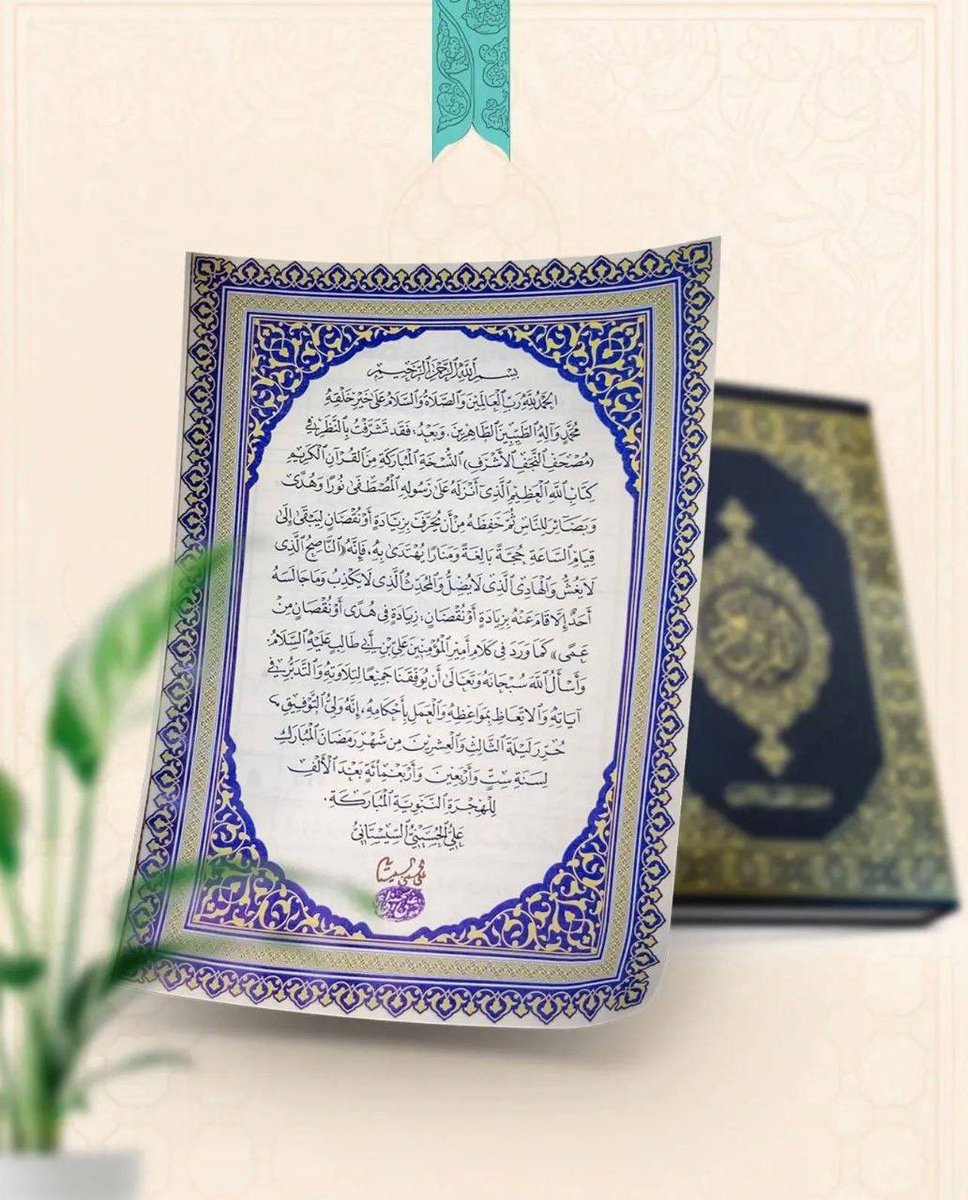 بِسْمِ ٱللَّهِ ٱلرَّحْمَٰنِ ٱلرَّحِيمِ
الحَمْدُ للهِ رَبِّ العَالَمِينَ وَالصَّلَاةُ وَالسَّلَامُ عَلَى خَيْرِ خَلْقِهِ
مُحَمَّدٍ وَآلِهِ الطَّيِّبِينَ الطَّاهِرِينَ. وَبَعْدُ، فَقَد تَشَرَّفْتُ بِالنَّظَرِ فِي
(مُصْحَفِ النَّجَفِ الأَشْرَفِ) النُّسْخَةِ المُبَارَكَةِ مِنَ القُرْآنِ الكَرِيمِ
كِتَابِ اللهِ العَظِيمِ الَّذِي أَنْزَلَهُ عَلَى رَسُولِهِ المُصْطَفَى نُورًا وَهُدًى
وَبَصَائِرَ لِلنَّاسِ ثُمَّ حَفِظَهُ مِنْ أَن يُحَرَّفَ بِزِيَادَةٍ أَوْ نُقْصَانٍ لِيَبْقَى إِلَى
قِيَامِ السَّاعَةِ حُجَّةً بَالِغَةً وَمَنَارًا يُهْتَدَى بِهِ، فَإِنَّهُ «النَّاصِحُ الَّذِي
لَا يَغُشُّ وَالهَادِي الَّذِي لَا يُضِلُّ وَالمُحَدِّثُ الَّذِي لَا يَكْذِبُ وَمَا جَالَسَهُ
أَحَدٌ إِلَّا قَامَ عَنْهُ بِزِيَادَةٍ أَوْ نُقْصَانٍ، زِيَادَةٍ فِي هُدًى أَوْ نُقْصَانٍ مِنْ
عَمًى» كَمَا وَرَدَ فِي كَلَامِ أَمِيرِ المُؤْمِنِينَ عَلِيِّ بْنِ أَبِي طَالِبٍ عَلَيْهِ السَّلَامُ.
وَأَسْأَلُ اللهَ سُبْحَانَهُ وَتَعَالَى أَن يُوَفِّقَنَا جَمِيعًا لِتِلَاوَتِهِ وَالتَّدَبُّرِ فِي
آيَاتِهِ وَالِاتِّعَاظِ بِمَوَاعِظِهِ وَالعَمَلِ بِأَحْكَامِهِ، إِنَّهُ وَلِيُّ التَّوْفِيقِ
حُرِّرَ لَيْلَةَ الثَّالِثِ وَالعِشْرِينَ مِن شَهْرِ رَمَضَانَ المُبَارَكِ
لِسَنَةِ سِتٍّ وَأَرْبَعِينَ وَأَرْبَعِمِائَةٍ بَعْدَ الأَلْفِ
لِلْهِجْرَةِ النَّبَوِيَّةِ المُبَارَكَةِ.
عَلِيٌّ الحُسَيْنِيُّ السِّيسْتَانِيُّ